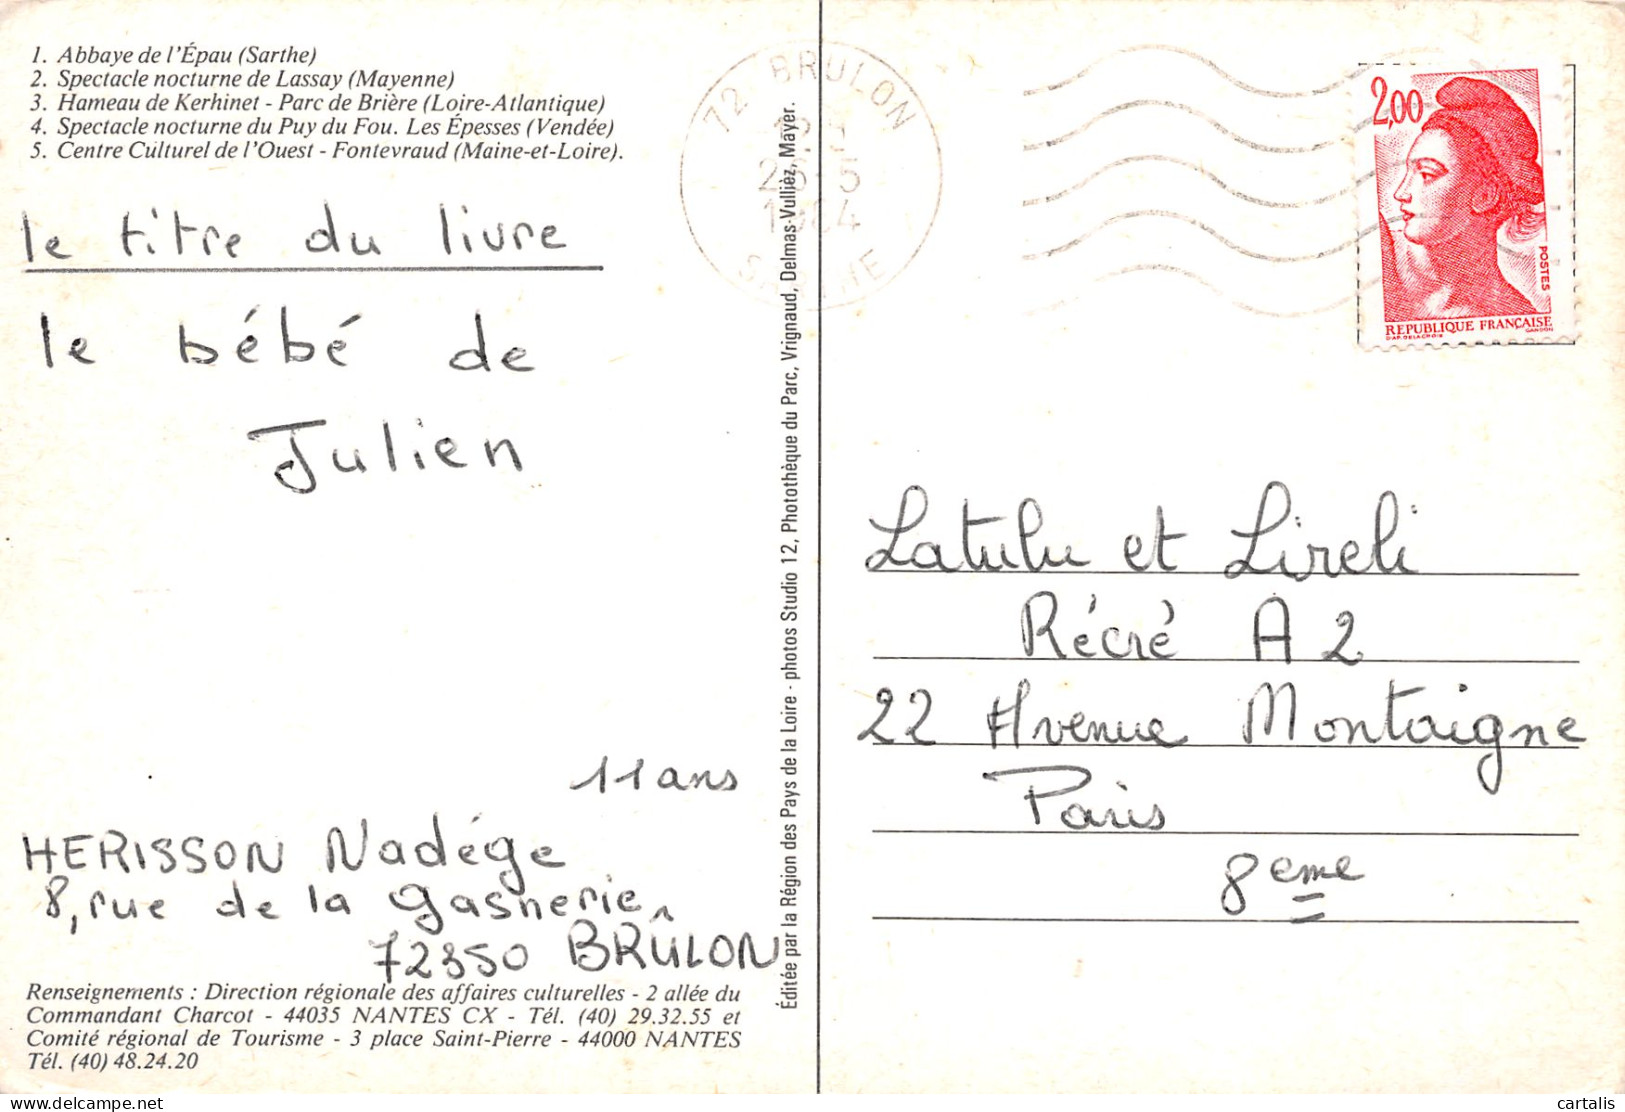 1. Abbaye de l'Épau (Sarthe)
2. Spectacle nocturne de Lassay (Mayenne)
3. Hameau de Kerhinet - Parc de Brière (Loire-Atlantique)
4. Spectacle nocturne du Puy du Fou. Les Épesses (Vendée)
5. Centre Culturel de l'Ouest - Fontevraud (Maine-et-Loire).
le titre du livre
le bébé de
Julien
11 ans
HERISSON Nadége
8, rue de la gasnerie
72350 BRÛLON
Renseignements : Direction régionale des affaires culturelles - 2 allée du
Commandant Charcot - 44035 NANTES CX - Tél. (40) 29.32.55 et
Comité régional de Tourisme - 3 place Saint-Pierre - 44000 NANTES
Tél. (40) 48.24.20
Éditée par la Région des Pays de la Loire - photos Studio 12, Photothèque du Parc, Vrignaud, Delmas-Vullièz, Mayer.
72 BRULON
1984
SARTHE
2,00
POSTES
REPUBLIQUE FRANÇAISE
D'AP. DELACROIX GANDON
Latulu et Lireli
Récré A 2
22 Avenue Montaigne
Paris
8eme
cartalis